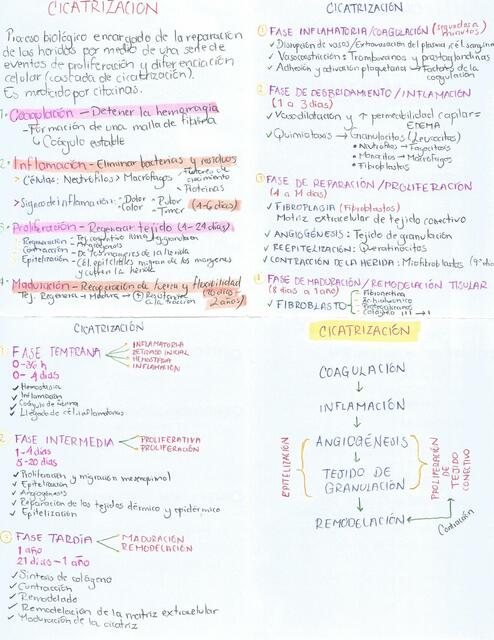 CICATRIZACION
Proceso biológico encargado de la reparación
de las heridas por medio de una serie de
eventos de proliferación y diferenciación
celular (cascada de cicatrización).
Es mediado por citocinas.
1• Coagulación — Detener la hemorragia
- Formación de una malla de fibrina
↳ Coágulo estable
2• Inflamación — Eliminar bacterias y residuos
> Células: Neutrófilos > Macrófagos
Factores de crecimiento
Proteínas
> Signos de inflamación:
- Dolor - Rubor
- Calor - Tumor
(1-6 días)
3• Proliferación — Regenerar tejido (4-24 días)
- Regeneración - Tej. conectivo, granulación
- Contracción - De los márgenes de la herida
- Epitelización - Cél. epiteliales migran de los márgenes
y cubren la herida
4• Maduración — Recuperación de fuerza y flexibilidad
Tej. Regenera → Madura → + Resistente
a la tracción
2 años)
CICATRIZACIÓN
① FASE INFLAMATORIA/COAGULACIÓN (segundos a
minutos)
✓ Disrupción de vasos/Extravasación del plasma y cél. sanguíneas
✓ Vasoconstricción: Tromboxanos y prostaglandinas
✓ Adhesión y activación plaquetaria → Factores de la
coagulación
2 FASE DE DESBRIDAMIENTO/INFLAMACIÓN
(1 a 3 días)
✓ Vasodilatación y ↑ permeabilidad capilar =
EDEMA
✓ Quimiotaxis → Granulocitos (Leucocitos)
• Neutrófilos → Fagocitosis
• Monocitos → Macrófagos
• Fibroblastos
③ FASE DE REPARACIÓN/PROLIFERACIÓN
(4 a 14 días)
✓ FIBROPLASIA (Fibroblastos)
Matriz extracelular de tejido conectivo
✓ ANGIOGÉNESIS: Tejido de granulación
✓ REEPITELIZACIÓN: Queratinocitos
✓ CONTRACCIÓN DE LA HERIDA: Miofibroblastos (9° día)
4 FASE DE MADURACIÓN/REMODELACIÓN TISULAR
(8 días a 1 año)
✓ FIBROBLASTO
- Fibronectina
- Ac. hialurónico
- Proteoglicanos
- Colágeno III → I
CICATRIZACIÓN
1 FASE TEMPRANA
INFLAMATORIA
RETRASO INICIAL
HEMOSTASIA
INFLAMACIÓN
0-36 h
0-4 días
✓ Hemostasia
✓ Inflamación
✓ Coágulo de fibrina
✓ Llegada de cél. inflamatorias
2 FASE INTERMEDIA
PROLIFERATIVA
PROLIFERACIÓN
1-4 días
5-20 días
✓ Proliferación y migración mesenquimal
✓ Epitelización
✓ Angiogénesis
✓ Reparación de los tejidos dérmico y epidérmico
✓ Epitelización
3 FASE TARDÍA
MADURACIÓN
REMODELACIÓN
1 año
21 días - 1 año
✓ Síntesis de colágeno
✓ Contracción
✓ Remodelado
✓ Remodelación de la matriz extracelular
✓ Maduración de la cicatriz
CICATRIZACIÓN
COAGULACIÓN
↓
INFLAMACIÓN
↓
ANGIOGÉNESIS
↓
TEJIDO DE
GRANULACIÓN
↓
REMODELACIÓN
EPITELIZACIÓN
PROLIFERACIÓN
DE
TEJIDO
CONECTIVO
Contracción